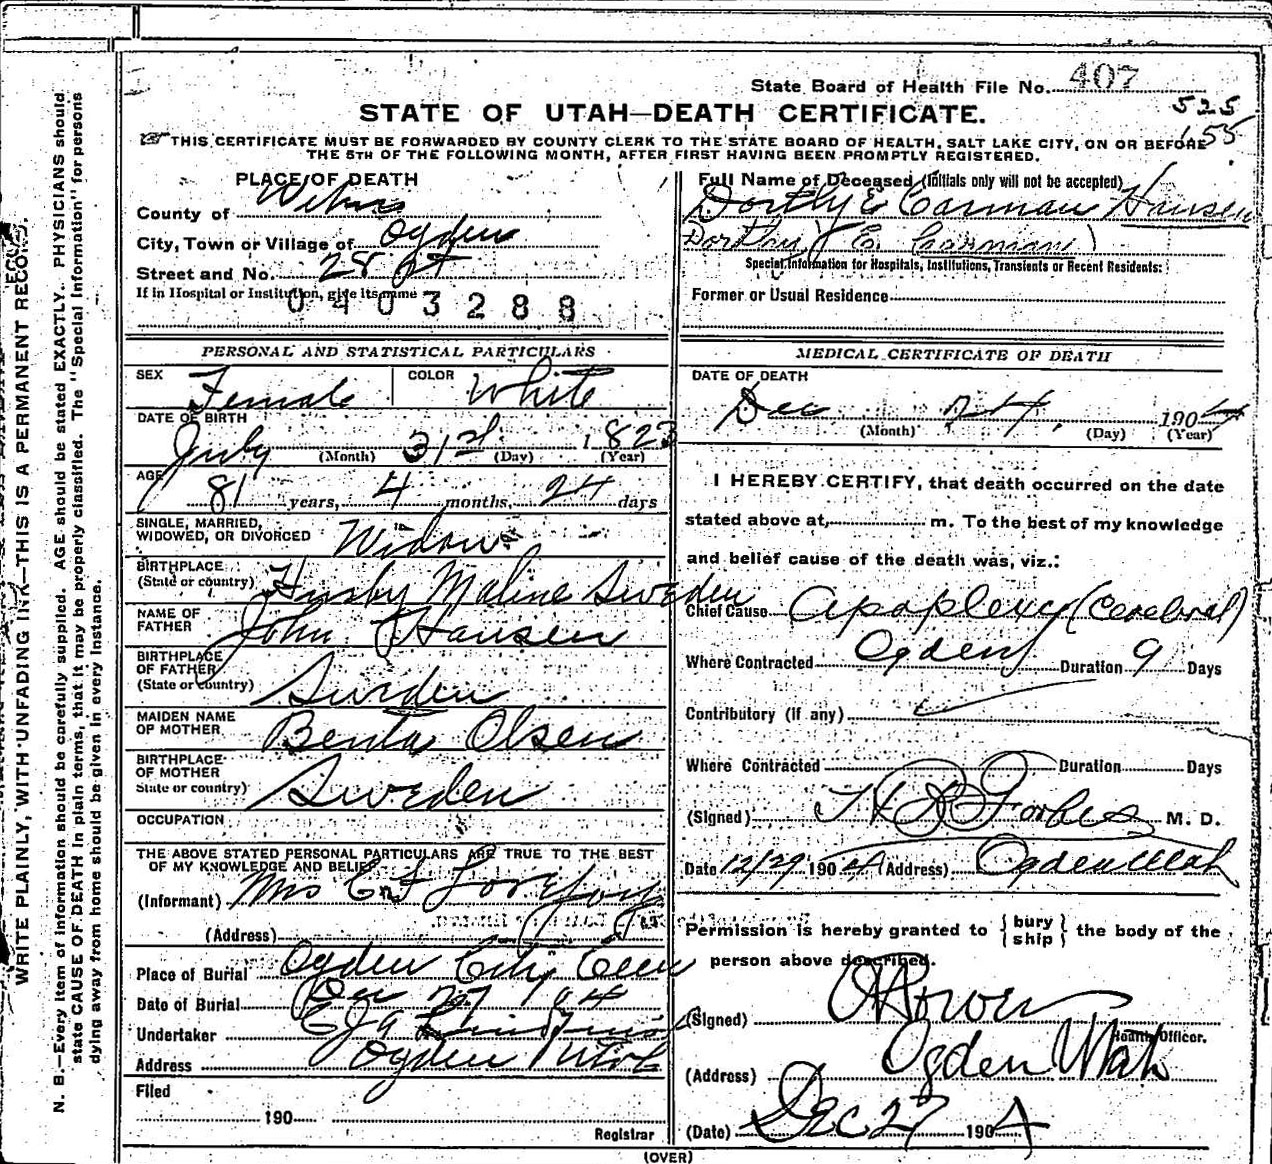 State Board of Health File No. 407
525
655
STATE OF UTAH—DEATH CERTIFICATE.
THIS CERTIFICATE MUST BE FORWARDED BY COUNTY CLERK TO THE STATE BOARD OF HEALTH, SALT LAKE CITY, ON OR BEFORE
THE 5TH OF THE FOLLOWING MONTH, AFTER FIRST HAVING BEEN PROMPTLY REGISTERED.
WRITE PLAINLY, WITH UNFADING INK—THIS IS A PERMANENT RECORD.
N. B.—Every item of information should be carefully supplied. AGE should be stated EXACTLY. PHYSICIANS should
state CAUSE OF DEATH in plain terms, that it may be properly classified. The "Special Information" for persons
dying away from home should be given in every instance.
PLACE OF DEATH
County of Weber
City, Town or Village of Ogden
Street and No. 28 St
If in Hospital or Institution, give its name
0403288
PERSONAL AND STATISTICAL PARTICULARS
SEX Female COLOR White
DATE OF BIRTH
July 31st 1823
(Month) (Day) (Year)
AGE 81 years, 4 months, 24 days
SINGLE, MARRIED,
WIDOWED, OR DIVORCED Widow
BIRTHPLACE
(State or country) Sweden
NAME OF
FATHER John Hansen
BIRTHPLACE
OF FATHER
(State or country) Sweden
MAIDEN NAME
OF MOTHER Benta Olsen
BIRTHPLACE
OF MOTHER
State or country) Sweden
OCCUPATION
THE ABOVE STATED PERSONAL PARTICULARS ARE TRUE TO THE BEST
OF MY KNOWLEDGE AND BELIEF
(Informant) Mrs
(Address)
Place of Burial Ogden City Cem
Date of Burial Dec 27 04
Undertaker
Address Ogden Utah
Filed
190
Registrar
Full Name of Deceased (Initials only will not be accepted)
Dorthy E Carman Hansen
Dorthy E. Carman)
Special Information for Hospitals, Institutions, Transients or Recent Residents:
Former or Usual Residence
MEDICAL CERTIFICATE OF DEATH
DATE OF DEATH
Dec 24, 1904
(Month) (Day) (Year)
I HEREBY CERTIFY, that death occurred on the date
stated above at, m. To the best of my knowledge
and belief cause of the death was, viz.:
Chief Cause Apoplexy (Cerebral)
Where Contracted Ogden Duration 9 Days
Contributory (if any)
Where Contracted Duration Days
(Signed) Forbes M. D.
Date 12/29 1904 (Address) Ogden Utah
Permission is hereby granted to {bury
ship} the body of the
person above described.
(Signed)
Health Officer.
(Address) Ogden Utah
(Date) Dec 27 1904
(OVER)